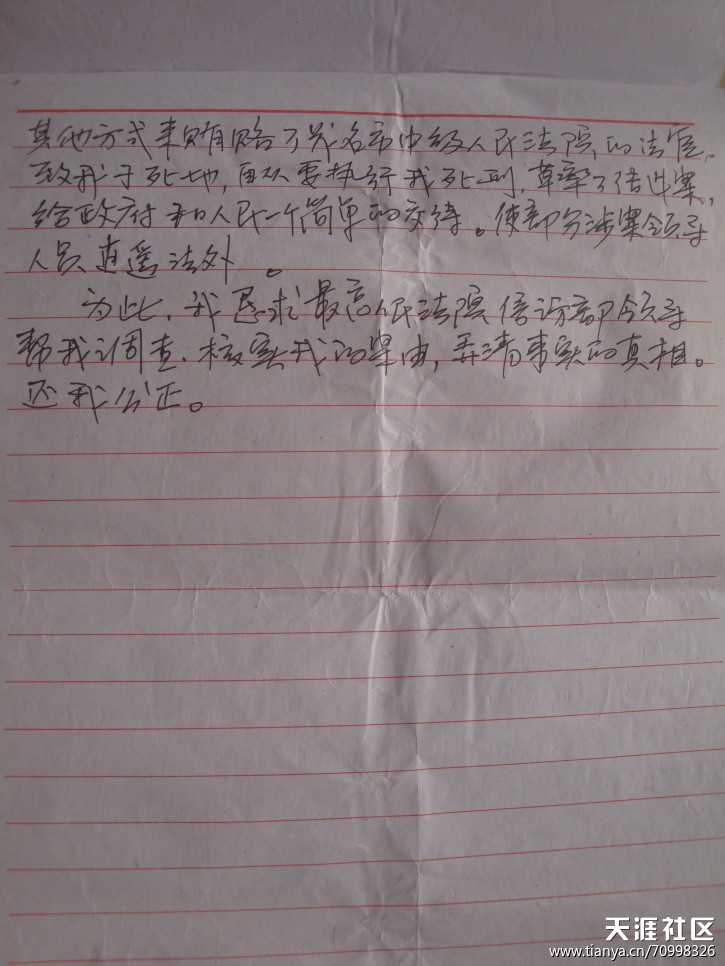 其他方式来贿赂了茂名市中级人民法院的法官,
致我于死地,再从要执行我死刑,草率了结此案,
给政府和人民一个简单的交待。使部分涉案领导
人员逍遥法外。
为此,我恳求最高人民法院信访部领导
帮我调查、核实我的案由,弄清事实的真相。
还我公正。
天涯社区
www.tianya.cn/70998326